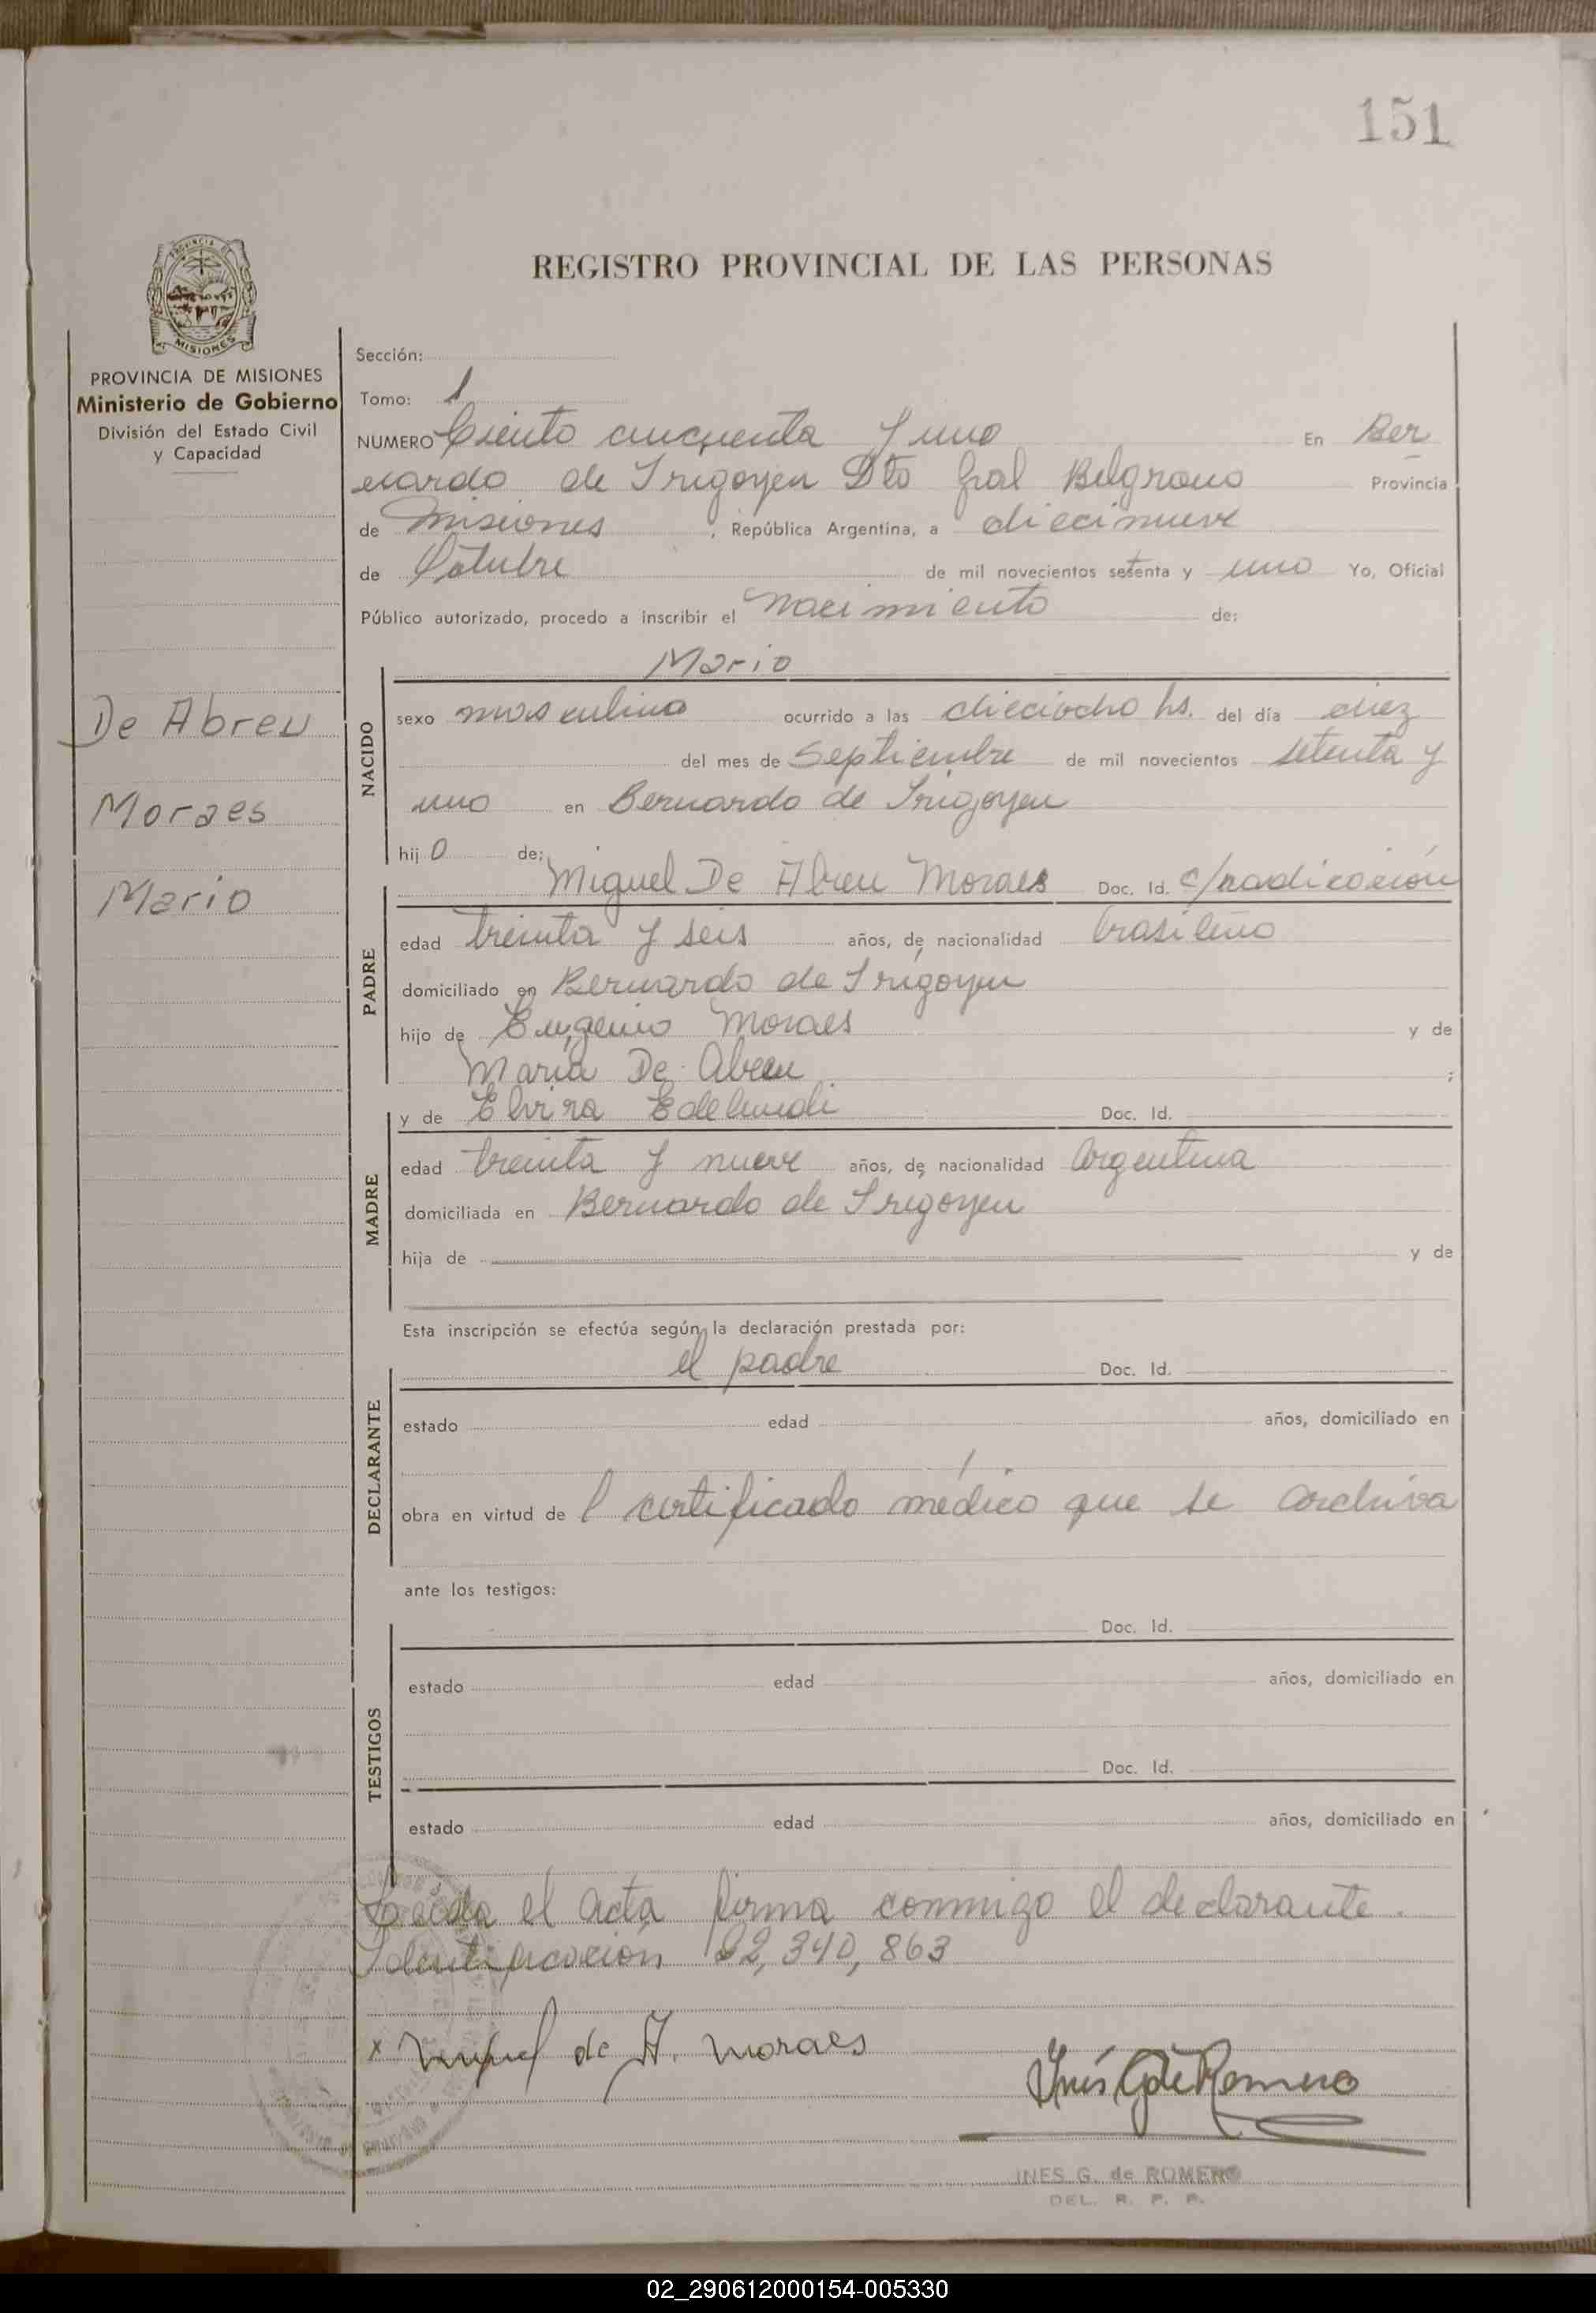 151
REGISTRO PROVINCIAL DE LAS PERSONAS
PROVINCIA DE MISIONES
Ministerio de Gobierno
División del Estado Civil
y Capacidad
De Abreu
Moraes
Mario
Sección:
Tomo: 1
NUMERO Ciento cincuenta y uno En Ber
nardo de Irigoyen Dto Gral Belgrano Provincia
de Misiones, República Argentina, a diecinueve
de Octubre de mil novecientos setenta y uno Yo, Oficial
Público autorizado, procedo a inscribir el nacimiento de:
Mario
NACIDO
sexo masculino ocurrido a las dieciocho hs. del día diez
del mes de Septiembre de mil novecientos setenta y
uno en Bernardo de Irigoyen
hijo de:
Miguel De Abreu Moraes Doc. Id. c/radicación
PADRE
edad treinta y seis años, de nacionalidad brasileño
domiciliado en Bernardo de Irigoyen
hijo de Eugenio Moraes y de
Maria De Abreu ;
y de Elvira Doc. Id.
MADRE
edad treinta y nueve años, de nacionalidad Argentina
domiciliada en Bernardo de Irigoyen
hija de y de
Esta inscripción se efectúa según la declaración prestada por:
el padre Doc. Id.
DECLARANTE
estado edad años, domiciliado en
obra en virtud de l certificado médico que se archiva
ante los testigos:
Doc. Id.
TESTIGOS
estado edad años, domiciliado en
Doc. Id.
estado edad años, domiciliado en
Leída el acta firma conmigo el declarante.
Identificación 22,340,863
x Miguel de A. Moraes
Inés G de Romero
INES G. de ROMERO
DEL. R. P. P.
02_290612000154-005330